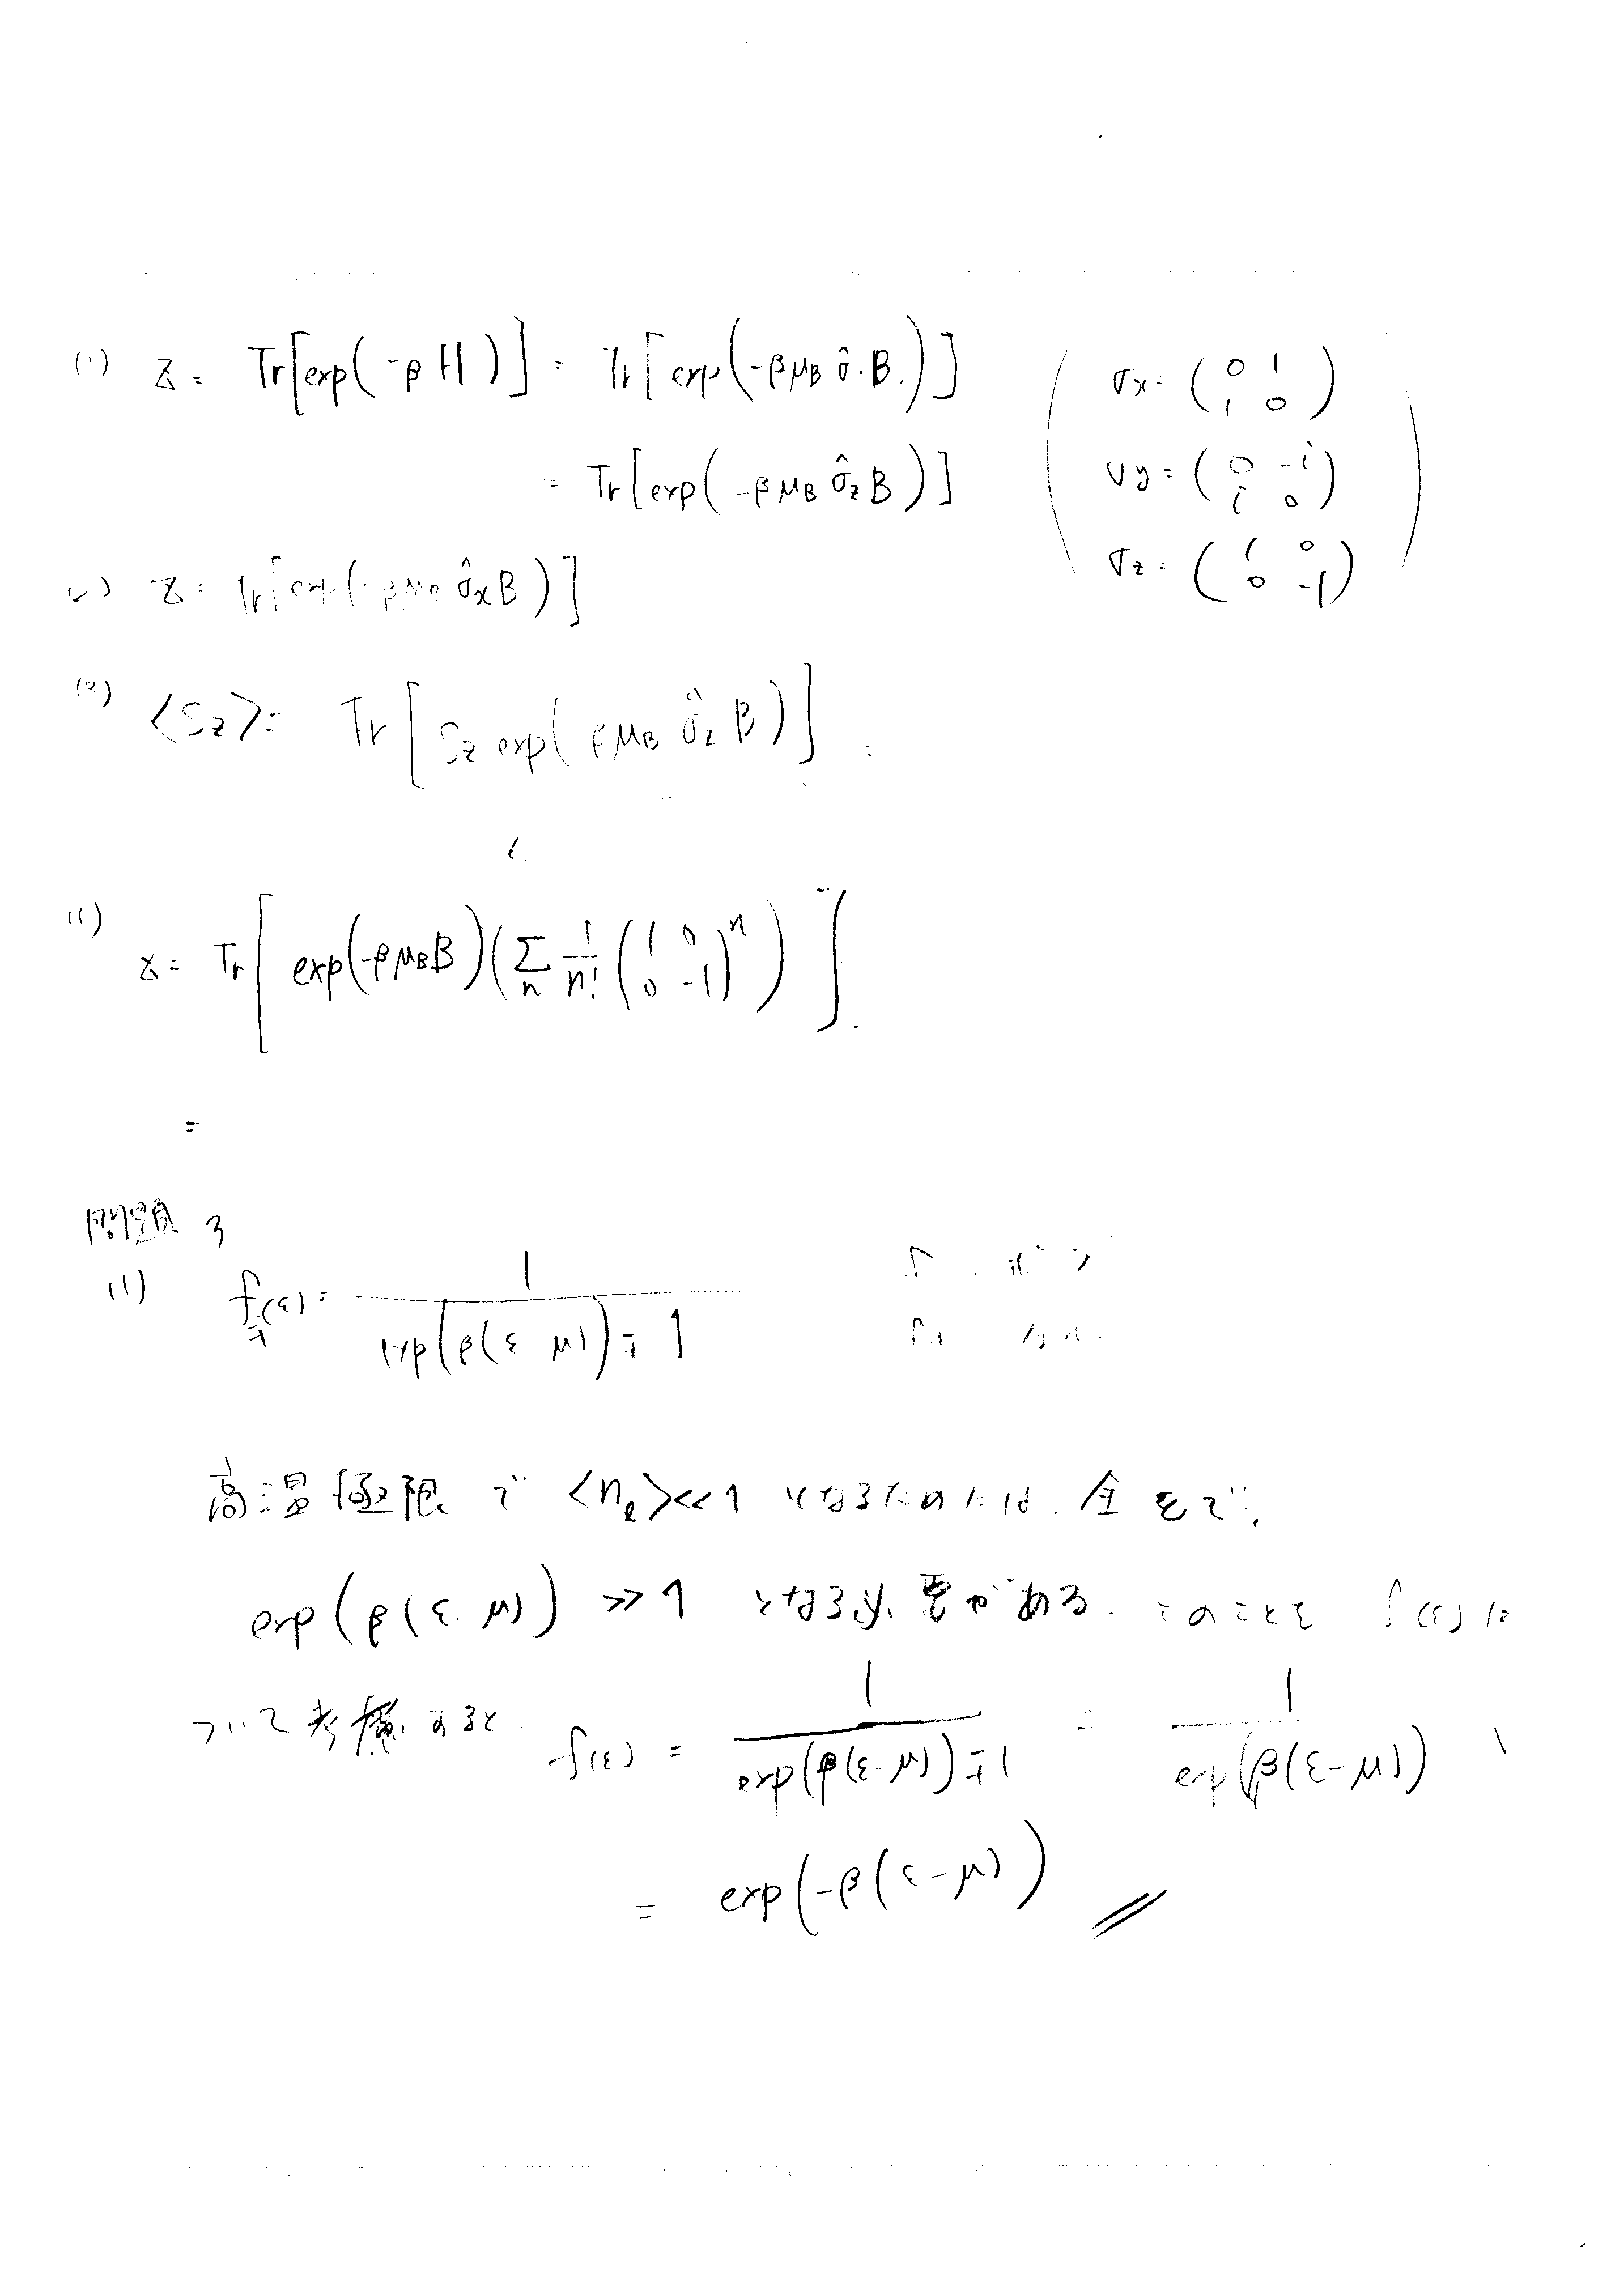 (1) Z = Tr[exp(-βH)] = Tr[exp(-βμ_B σ̂·B.)]
= Tr[exp(-βμ_B σ̂_z B)]
(σx = (0 1 / 1 0)
σy = (0 -i / i 0)
σz = (1 0 / 0 -1))
(2) Z = Tr[exp(-βμ_B σ̂_x B)]
(3) <S_z> = Tr[S_z exp(-βμ_B σ̂_z B)]
(1)
Z = Tr[exp(-βμ_B B)(Σ_n 1/n! (1 0 / 0 -1)^n)]
=
問題 3
(1) f_∓(ε) = 1/(exp(β(ε-μ)) ∓ 1)
高温極限で <n_l> << 1 となるためには、全εで、
exp(β(ε-μ)) >> 1 となる必要がある. このことを f(ε)に
ついて考慮すると. f(ε) = 1/(exp(β(ε-μ)) ∓ 1) = 1/exp(β(ε-μ))
= exp(-β(ε-μ))